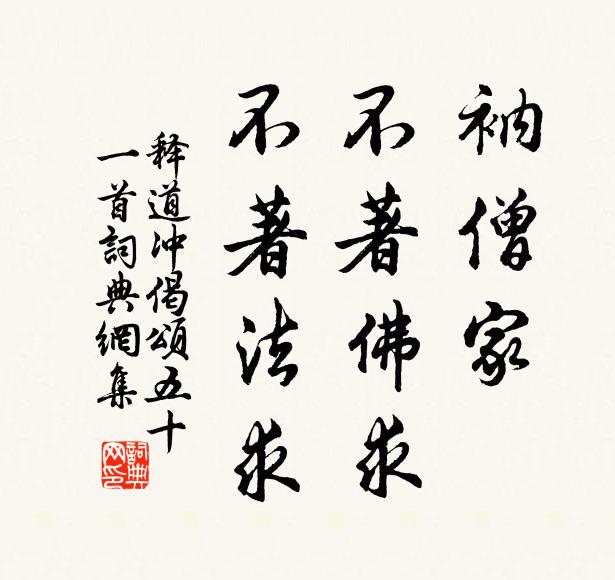 衲僧家
不著佛求
不著法求
释道冲偈頌五十
一首詞典網集
詞典
网印